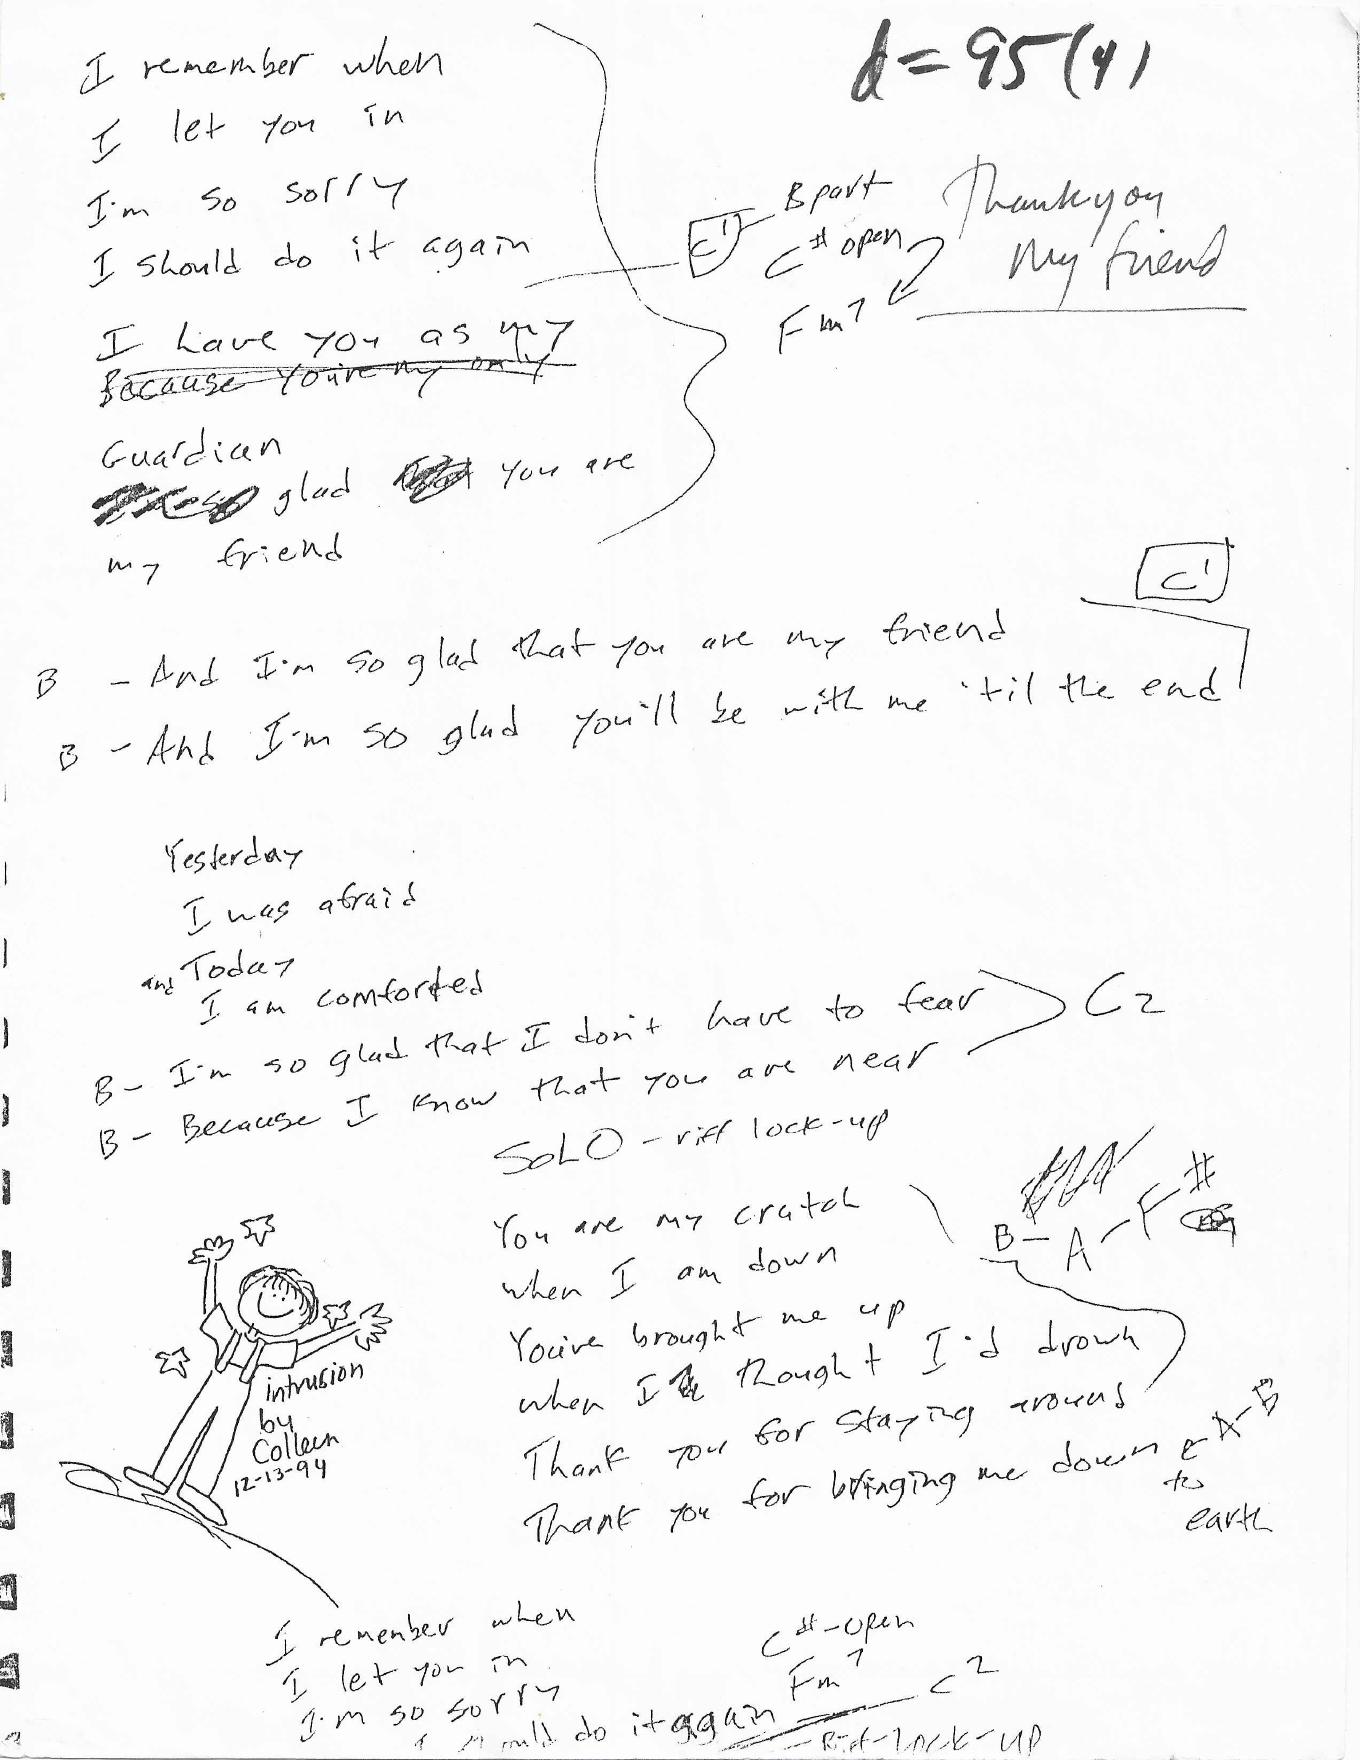 d = 95 (4)
Thank you
My friend
I remember when
I let you in
I'm so sorry
I should do it again
C1
B part
C# open
Fm7
I have you as my
Because You're my only
Guardian
glad you are
my friend
C1
B - And I'm so glad that you are my friend
B - And I'm so glad you'll be with me 'til the end
Yesterday
I was afraid
and Today
I am comforted
B - I'm so glad that I don't have to fear
B - Because I know that you are near
C2
SOLO - riff lock-up
You are my crutch
when I am down
You've brought me up
when I thought I'd drown
Thank you for staying around
Thank you for bringing me down
to
earth
B - A - F#
A - B
intrusion
by
Colleen
12-13-94
I remember when
I let you in
I'm so sorry
I should do it again
C#-open
Fm7
C2
Riff-Lock-up